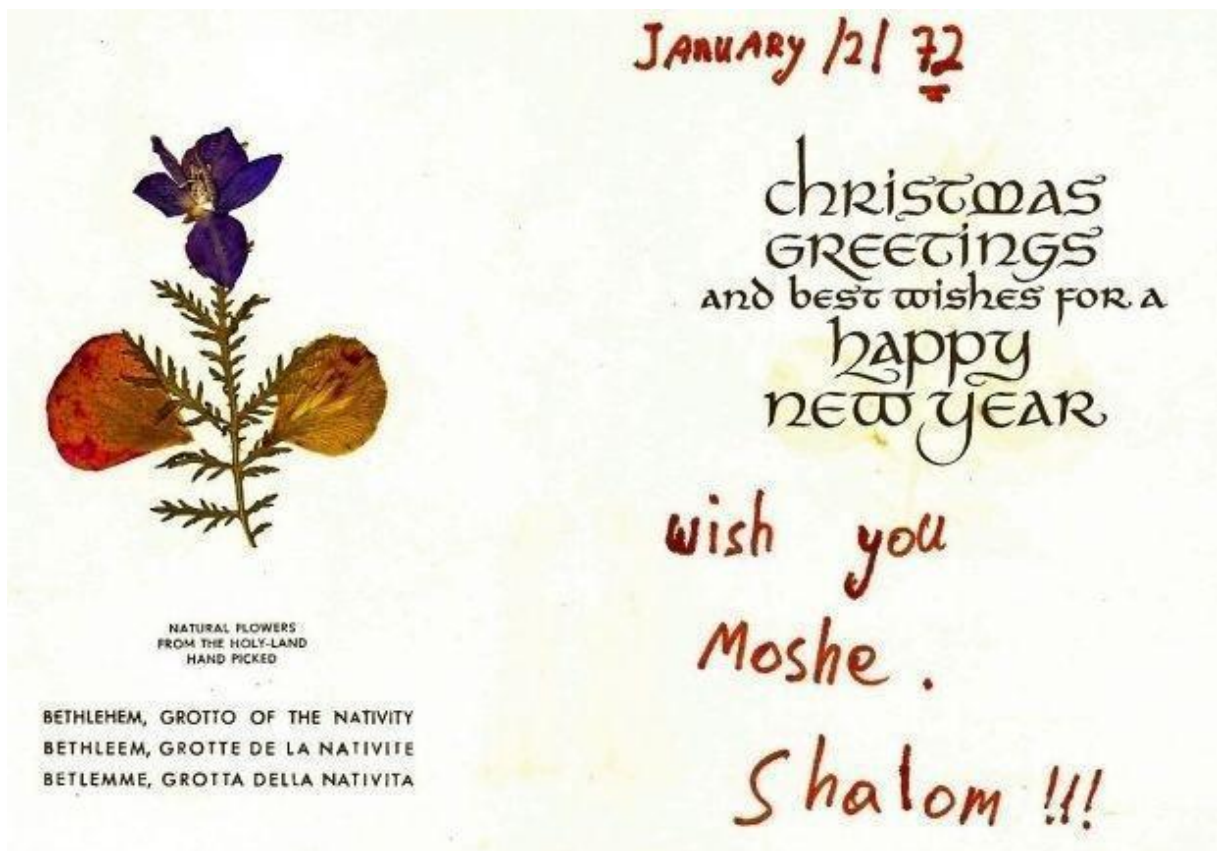 NATURAL FLOWERS
FROM THE HOLY-LAND
HAND PICKED
BETHLEHEM, GROTTO OF THE NATIVITY
BETHLEEM, GROTTE DE LA NATIVITE
BETLEMME, GROTTA DELLA NATIVITA
JANUARY /2/ 72
christmas
GREETINGS
and best wishes for a
happy
NEW YEAR
wish you
Moshe.
Shalom !!!